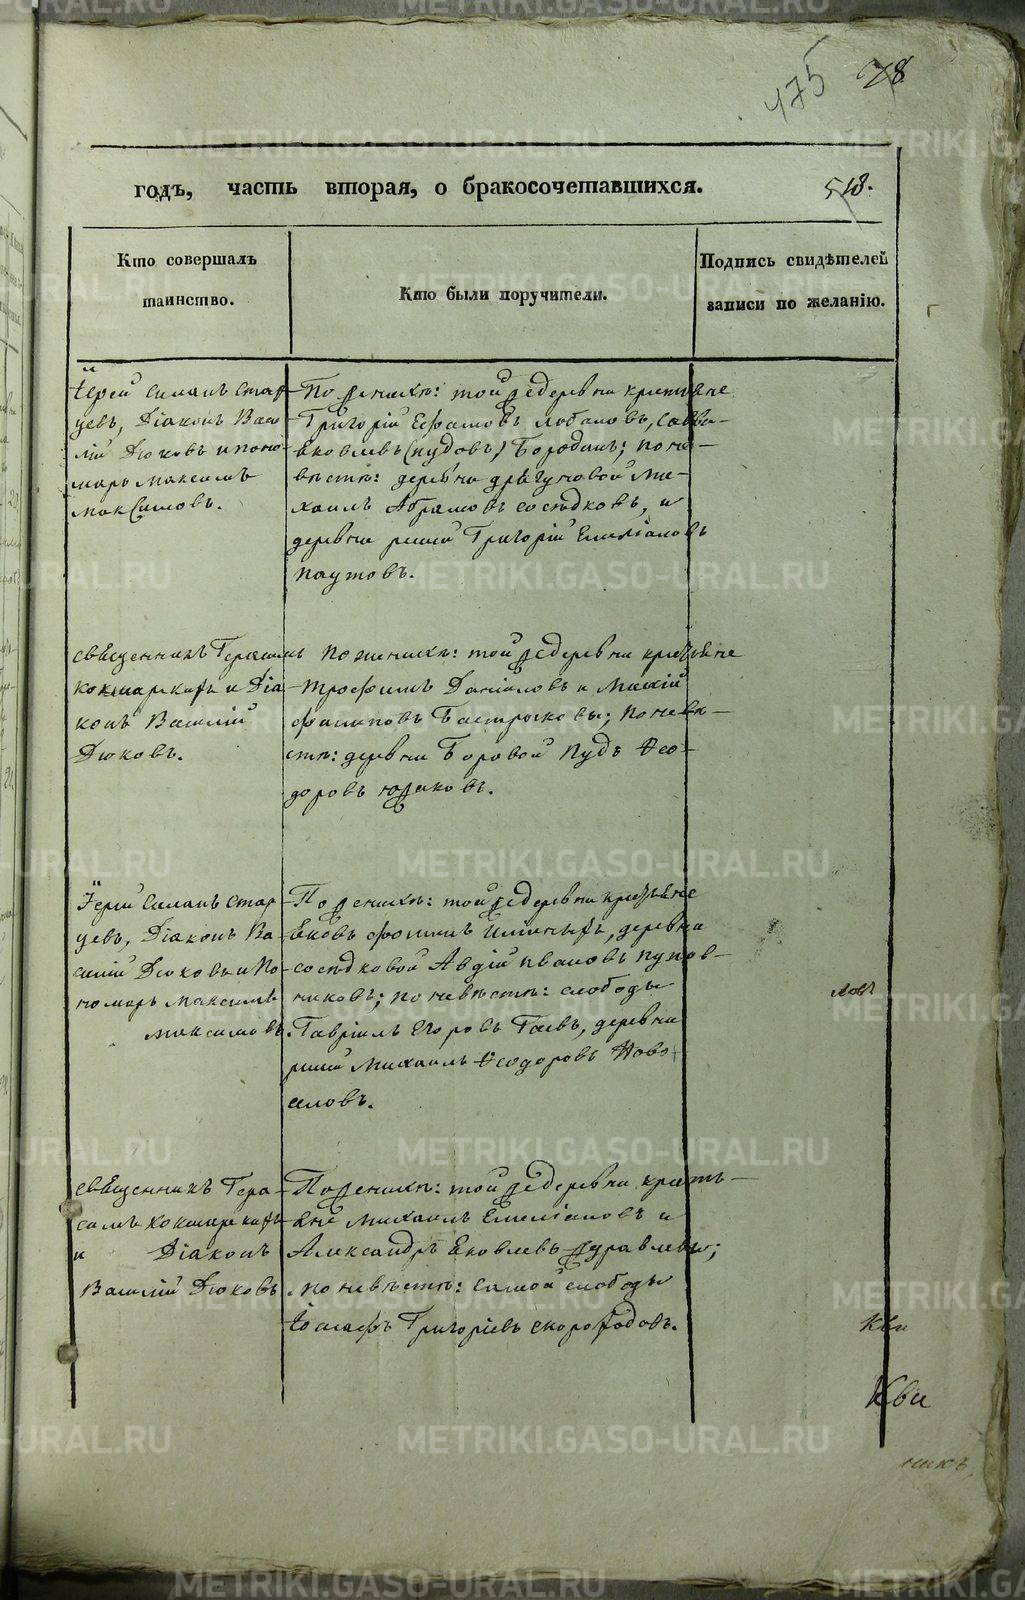 475 78
годъ, часть вторая, о бракосочетавшихся. 518.
Кто совершалъ
таинство.
Кто были поручители.
Подпись свидѣтелей
записи по желанію.
Іерей Силанъ Стар-
цевъ, Діаконъ Васи-
лій Дюковъ и поно-
марь Максимъ
Максимовъ.
По женихѣ: той же деревни крестьяне
Григорій Ефимовъ Лобановъ, Савва
Яковлевъ (Пудовъ) Бородинъ; по не-
вѣстѣ: деревни Дрягуновой Ми-
хаилъ Абрамовъ Сосѣдковъ, и
деревни Реши Григорій Емеліановъ
Паутовъ.
Священникъ Герасимъ
Кокшарскихъ и Діа-
конъ Василій
Дюковъ.
По женихѣ: той же деревни крестьяне
Трофимъ Даніиловъ и
Филиповъ Бастрыковы; по невѣ-
стѣ: деревни Боровой Пудъ Ѳео-
доровъ Южаковъ.
Іерей Силанъ Стар-
цевъ, Діаконъ Ва-
силій Дюковъ и По-
номарь Максимъ
Максимовъ.
По женихѣ: той же деревни крестьяне
Яковъ Фоминъ, деревни
Сосѣдковой Авдій Ивановъ
никовъ; по невѣстѣ: слободы
Гавріилъ Егоровъ Гаевъ, деревни
Реши Михаилъ Ѳеодоровъ Ново-
селовъ.
Священникъ Гера-
симъ Кокшарскихъ
и Діаконъ
Василій Дюковъ
По женихѣ: той же деревни кресть-
яне Михаилъ Емеліановъ и
Александръ Яковлевъ Журавлевы;
по невѣстѣ: самой слободы
Іоасафъ Григоріевъ Скороходовъ.
ловъ
Кви
Кви
никъ
METRIKI.GASO-URAL.RU